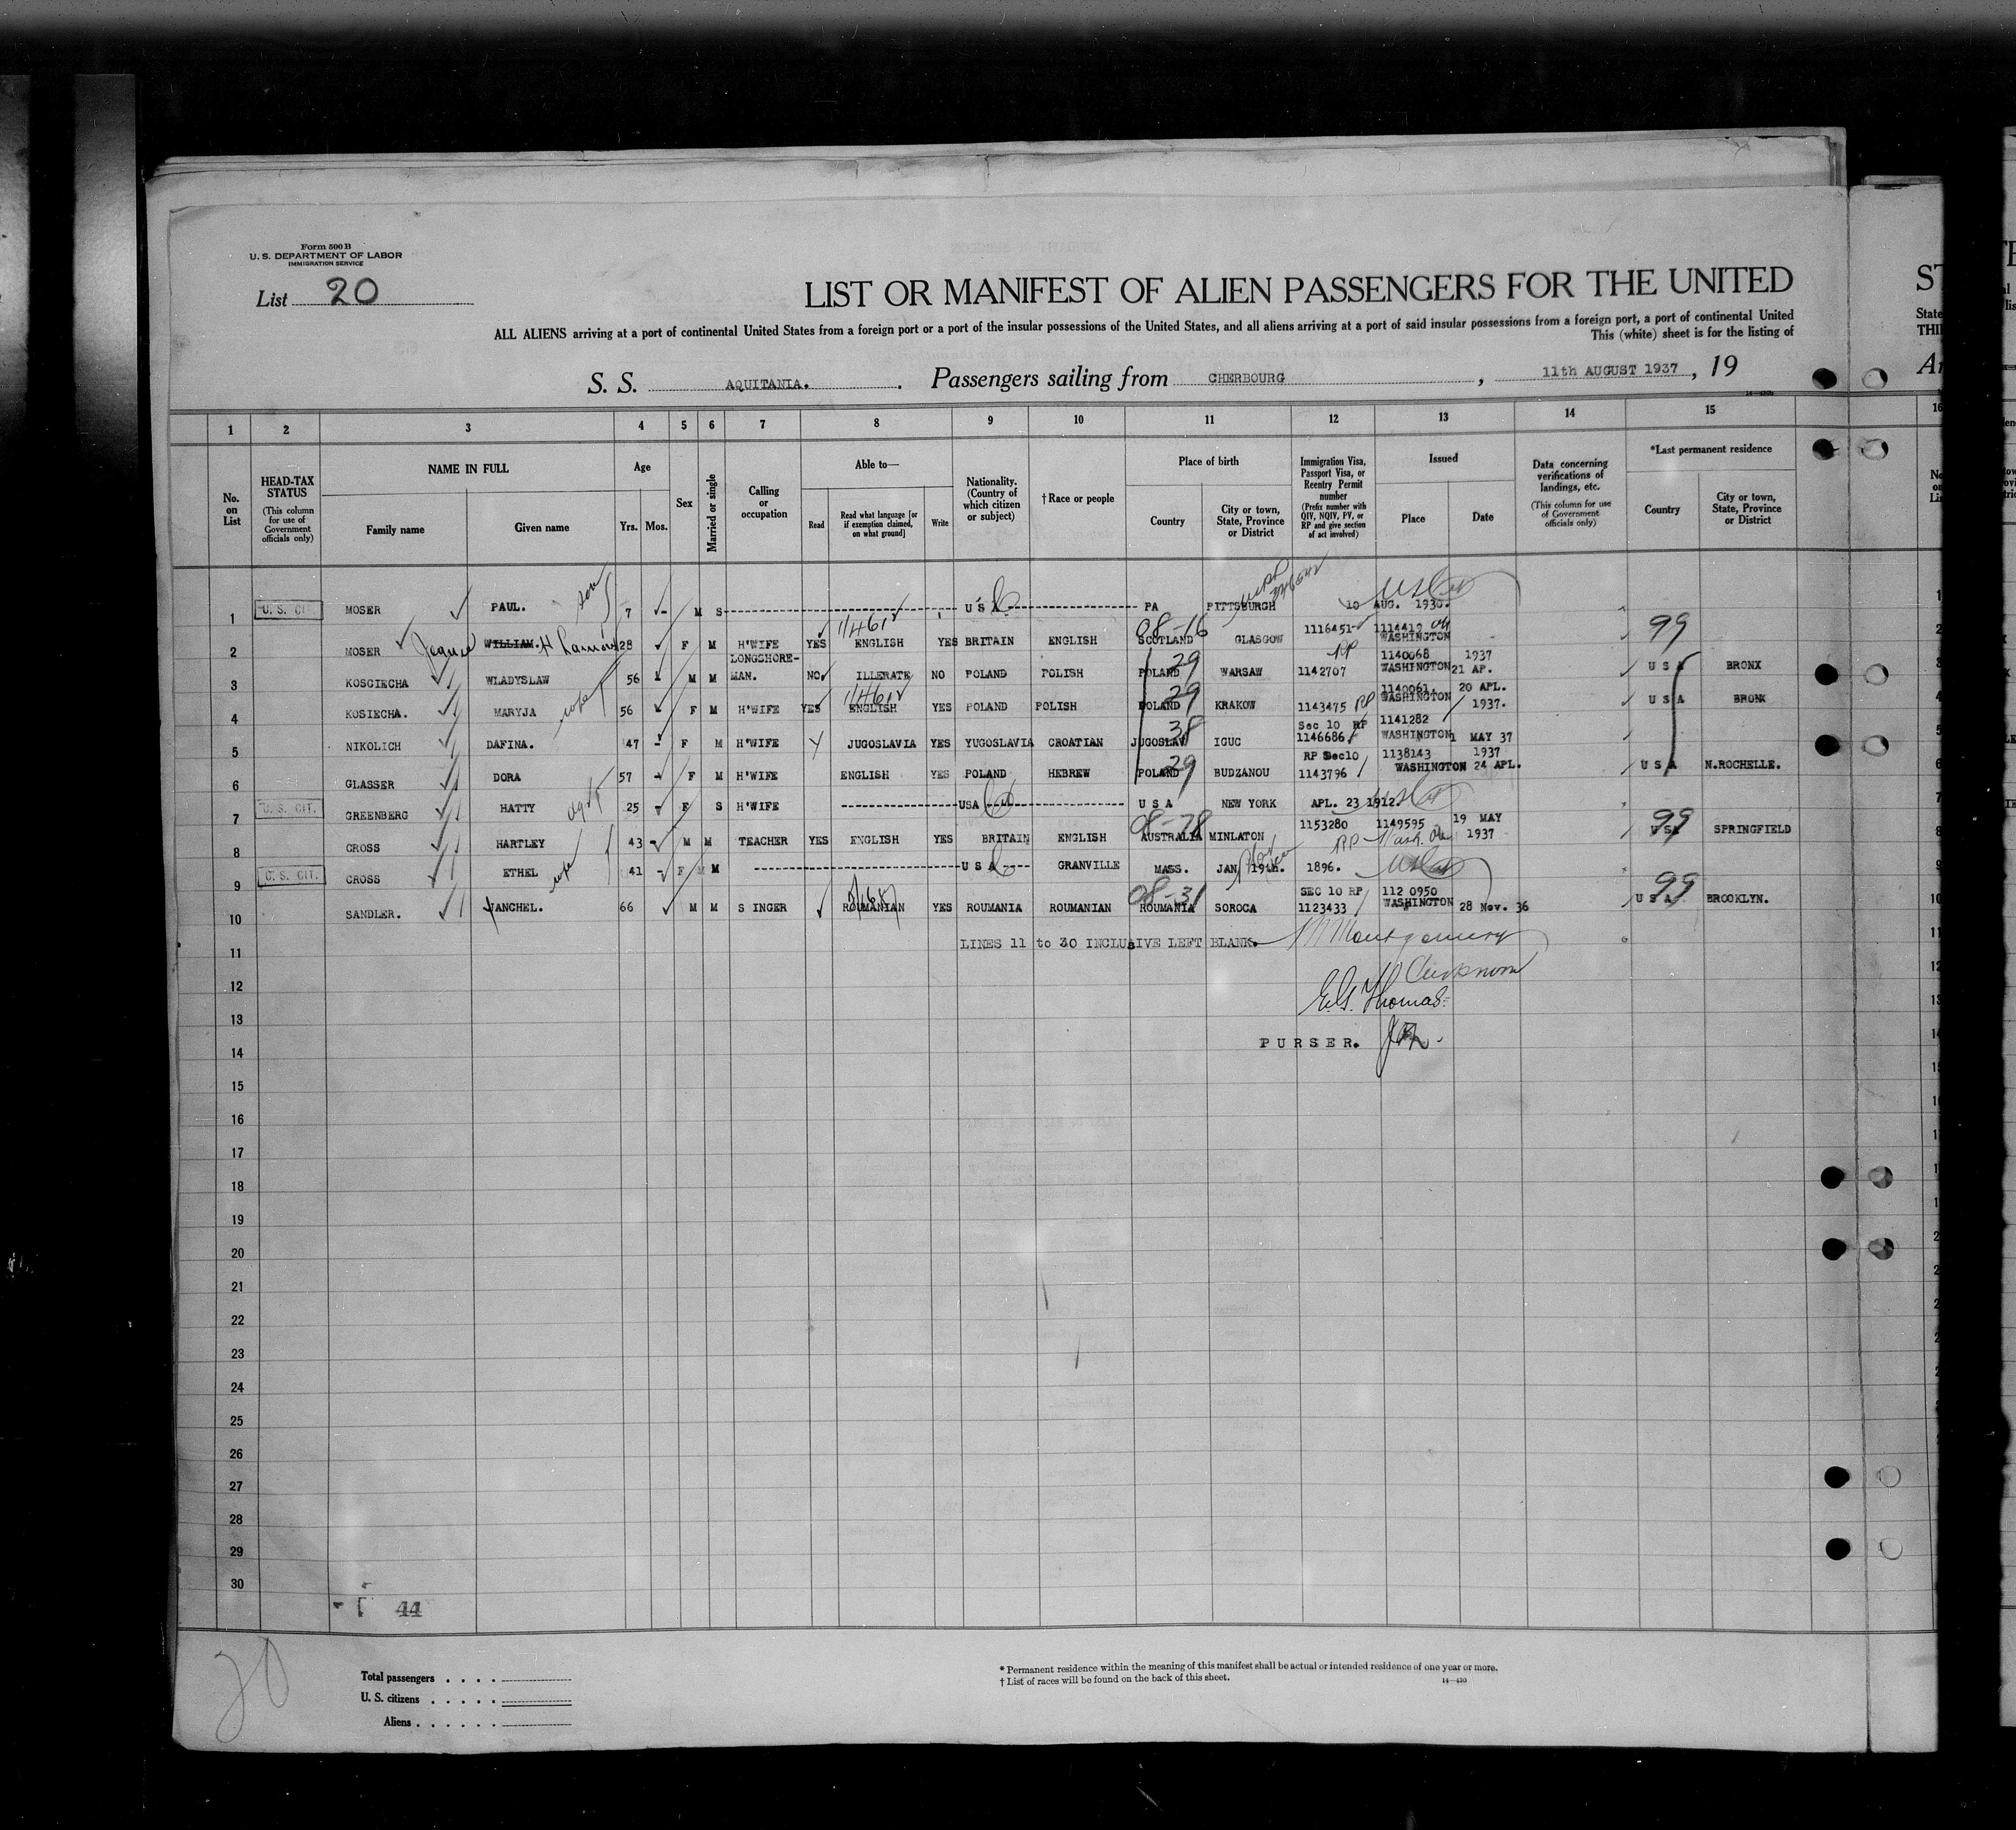 Form 500 B
U. S. DEPARTMENT OF LABOR
IMMIGRATION SERVICE
List 20
LIST OR MANIFEST OF ALIEN PASSENGERS FOR THE UNITED
ALL ALIENS arriving at a port of continental United States from a foreign port or a port of the insular possessions of the United States, and all aliens arriving at a port of said insular possessions from a foreign port, a port of continental United
This (white) sheet is for the listing of
S. S. AQUITANIA. Passengers sailing from CHERBOURG, 11th AUGUST 1937, 19
1 2 3 4 5 6 7 8 9 10 11 12 13 14 15
No. on List
HEAD-TAX STATUS (This column for use of Government officials only)
NAME IN FULL Family name Given name
Age Yrs. Mos.
Sex
Married or single
Calling or occupation
Able to— Read Read what language [or if exemption claimed, on what ground] Write
Nationality. (Country of which citizen or subject)
† Race or people
Place of birth Country City or town, State, Province or District
Immigration Visa, Passport Visa, or Reentry Permit number (Prefix number with QIV, NQIV, PV, or RP and give section of act involved)
Issued Place Date
Data concerning verifications of landings, etc. (This column for use of Government officials only)
*Last permanent residence Country City or town, State, Province or District
1 U. S. CI MOSER PAUL. son 7 - M S U S A PA PITTSBURGH 10 AUG. 1930.
2 MOSER WILLIAM. 28 F M H'WIFE YES ENGLISH YES BRITAIN ENGLISH SCOTLAND 08-16 GLASGOW 1116451 RP 1114412 WASHINGTON 99
3 KOSCIECHA WLADYSLAW 56 M M LONGSHORE-MAN. NO ILLERATE NO POLAND POLISH POLAND 29 WARSAW 1142707 1140068 WASHINGTON 1937 21 AP. U S A BRONX
4 KOSIECHA. MARYJA wife 56 F M H'WIFE YES ENGLISH YES POLAND POLISH POLAND 29 KRAKOW 1143475 RP WASHINGTON 20 APL. 1937. U S A BRONX
5 NIKOLICH DAFINA. 47 - F M H'WIFE JUGOSLAVIA YES YUGOSLAVIA CROATIAN JUGOSLAV 38 IGUC Sec 10 RP 1146686 1141282 WASHINGTON 1 MAY 37
6 GLASSER DORA 57 - F M H'WIFE ENGLISH YES POLAND HEBREW POLAND 29 BUDZANOU RP Sec10 1143796 1138143 WASHINGTON 1937 24 APL. U S A N.ROCHELLE.
7 U. S. CIT. GREENBERG HATTY 25 - F S H'WIFE USA U S A NEW YORK APL. 23 1912.
8 CROSS HARTLEY 43 - M M TEACHER YES ENGLISH YES BRITAIN ENGLISH AUSTRALIA 08-78 MINLATON 1153280 RP 1149595 Wash. 19 MAY 1937 USA 99 SPRINGFIELD
9 U. S. CIT. CROSS ETHEL wife 41 - F M M U S A GRANVILLE MASS. JAN 19th. 1896.
10 SANDLER. YANCHEL. 66 M M S INGER ROUMANIAN YES ROUMANIA ROUMANIAN ROUMANIA 08-31 SOROCA SEC 10 RP 1123433 112 0950 WASHINGTON 28 Nov. 36 U S A 99 BROOKLYN.
11 LINES 11 to 30 INCLUSIVE LEFT BLANK. Montgomery
12
13 E.G. Thomas.
14 PURSER.
15
16
17
18
19
20
21
22
23
24
25
26
27
28
29
30
44
20
Total passengers . . . .
U. S. citizens . . . . .
Aliens . . . . . .
* Permanent residence within the meaning of this manifest shall be actual or intended residence of one year or more.
† List of races will be found on the back of this sheet. 14—430